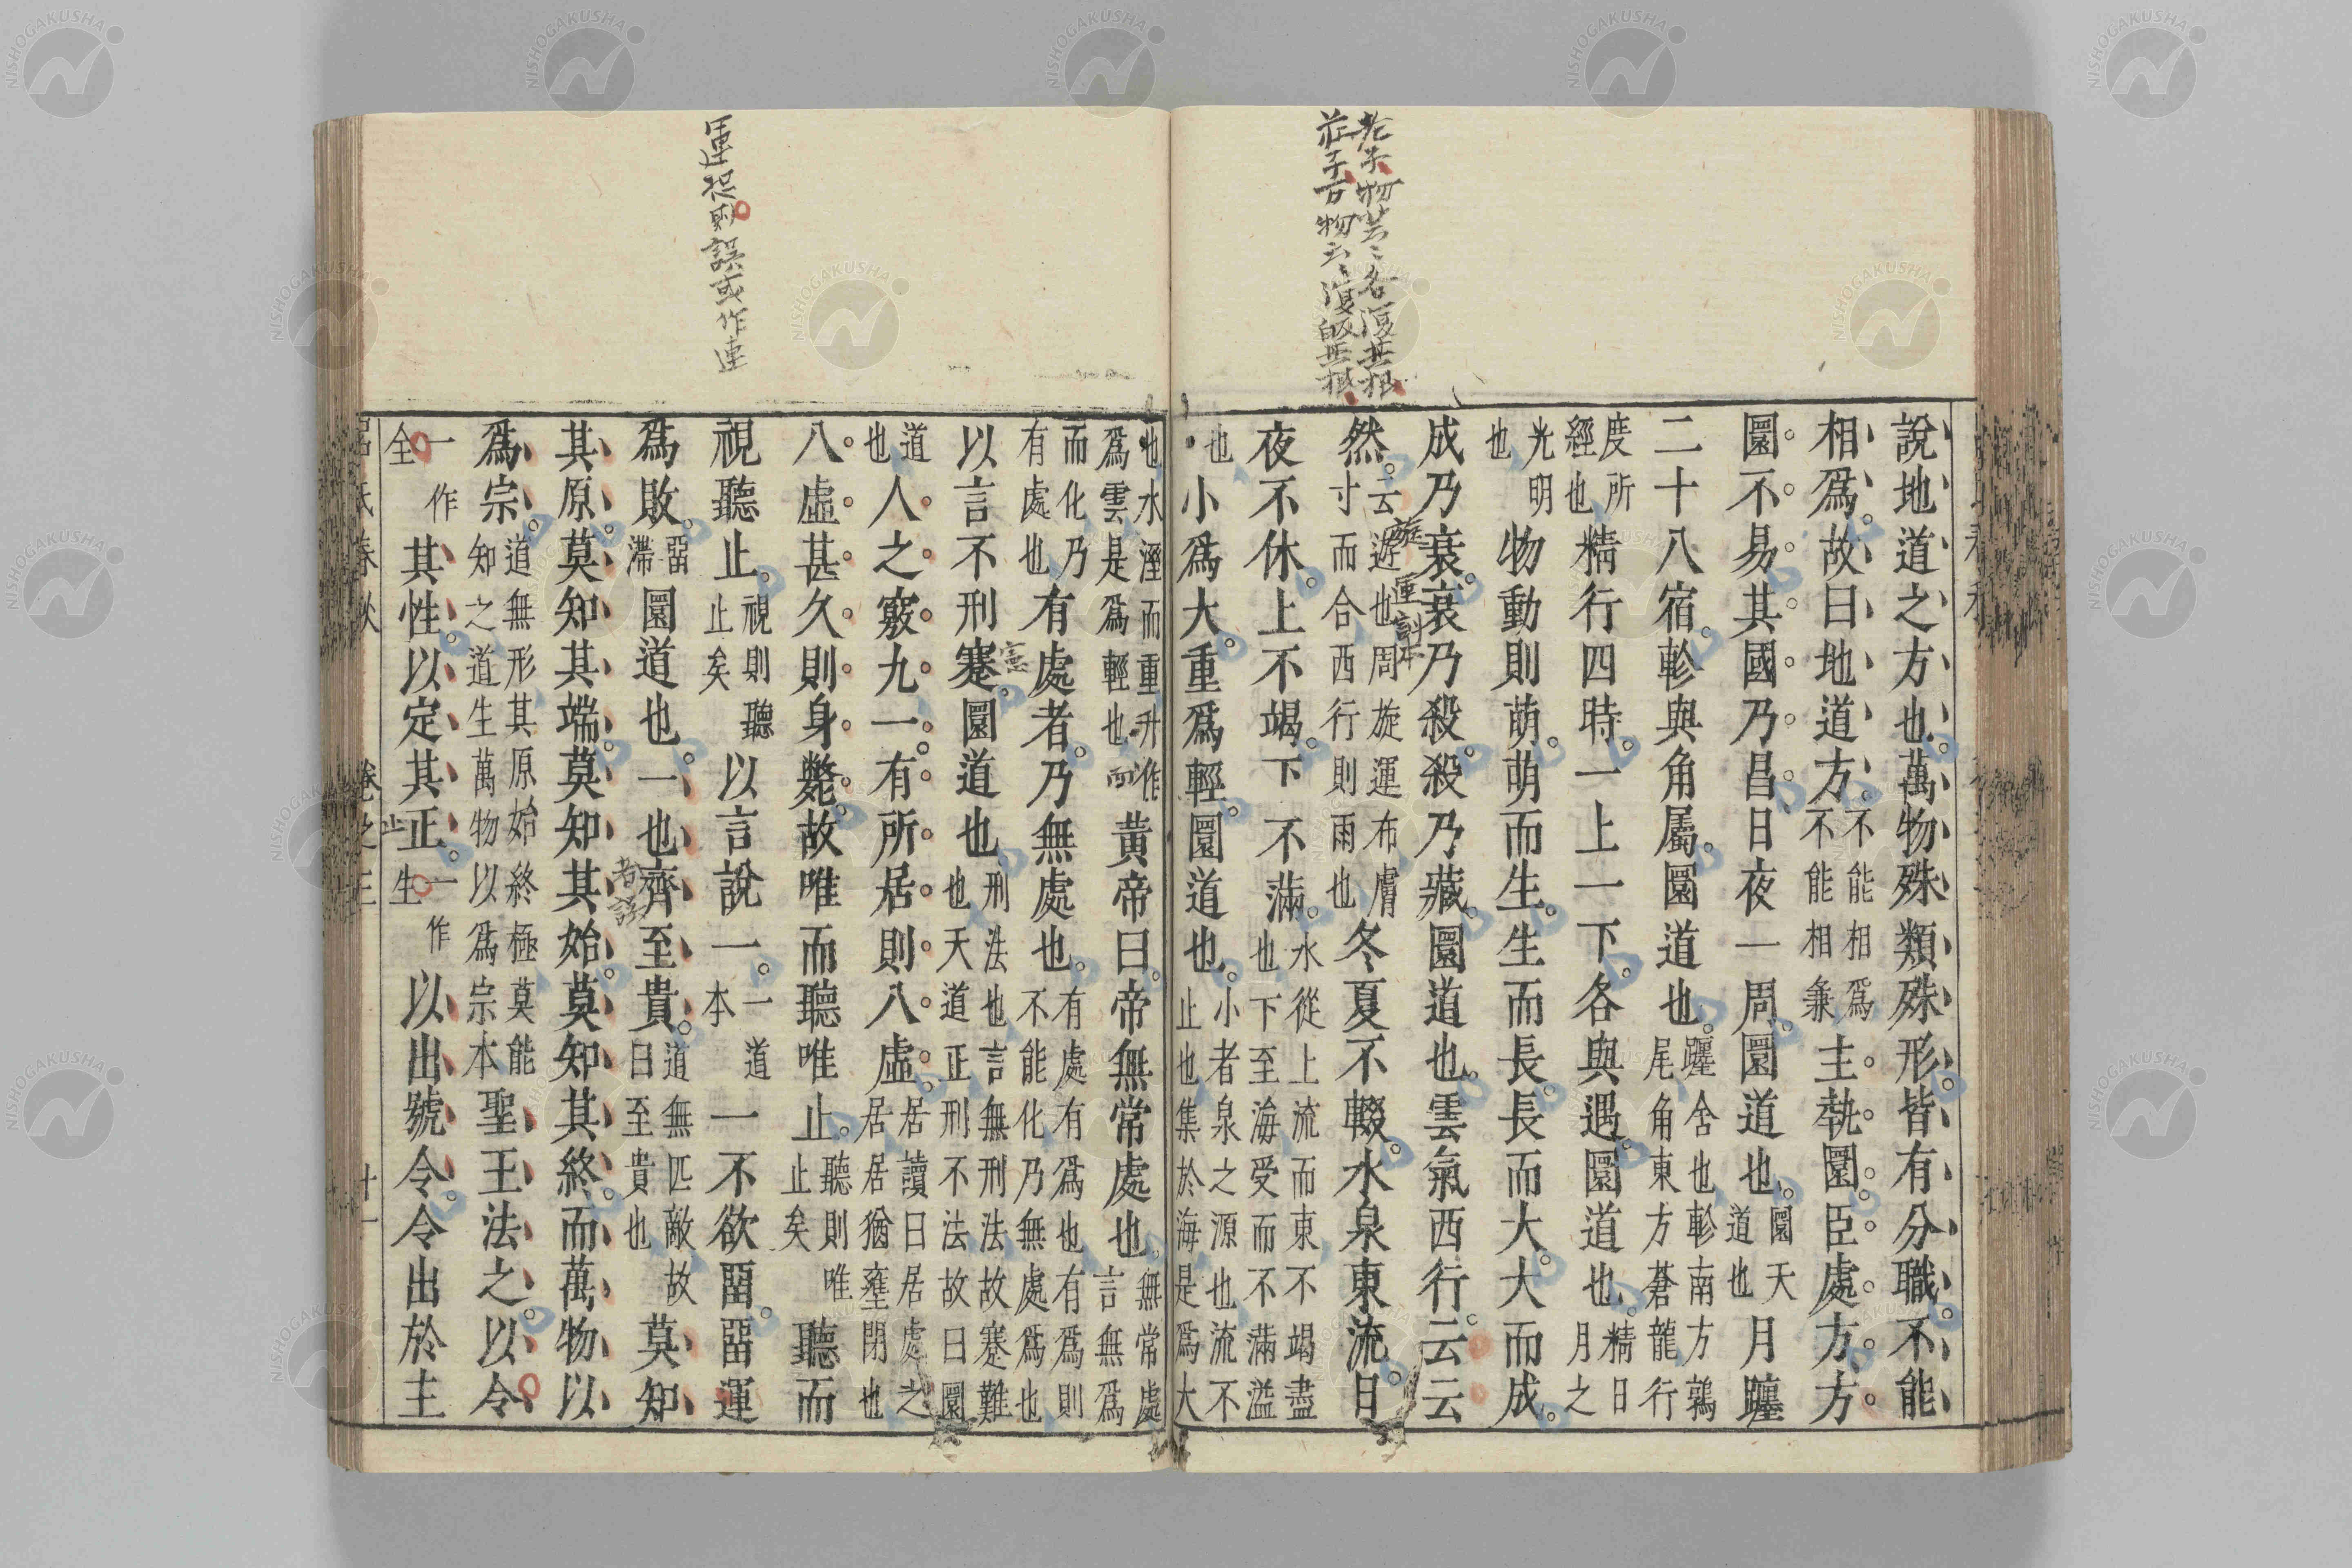 老子物芸〻各復其根
莊子百物云〻復皈其根
說地道之方也萬物殊類殊形皆有分職不能
相爲故曰地道方不能相爲不能相兼主執圜臣處方方
圜不易其國乃昌日夜一周圜道也圜天道也月躔
二十八宿軫與角屬圜道也躔舍也軫南方鶉尾角東方蒼龍行
度所經也精行四時一上一下各與遇圜道也精日月之
光明也物動則萌萌而生生而長長而大大而成
成乃衰衰乃殺殺乃藏圜道也雲氣西行云云
然云遊也周旋運布膚寸而合西行則雨也冬夏不輟水泉東流日
夜不休上不竭下不滿水從上流而東不竭盡也下至海受而不滿溢
也小爲大重爲輕圜道也小者泉之源也流不止也集於海是爲大
也水溼而重升作爲雲是爲輕也黃帝曰帝無常處也無常處言無爲
而化乃有處也有處者乃無處也有處有爲也有爲則不能化乃無處爲也
以言不刑蹇圜道也刑法也言無刑法故蹇難也天道正刑不法故曰圜
道也人之竅九一有所居則八虛居讀曰居處之居居猶壅閉也
八虛甚久則身斃故唯而聽唯止聽則唯止矣聽而
視聽止視則聽止矣以言說一一道本一不欲留留運
爲敗留滯圜道也一也齊至貴道無匹敵故曰至貴也莫知
其原莫知其端莫知其始莫知其終而萬物以
爲宗道無形其原始終極莫能知之道生萬物以爲宗本聖王法之以令
一作全其性以定其正一作生以出號令令出於主
呂氏春秋 卷之三 十一
運記則誤或作連
旋
憲
而